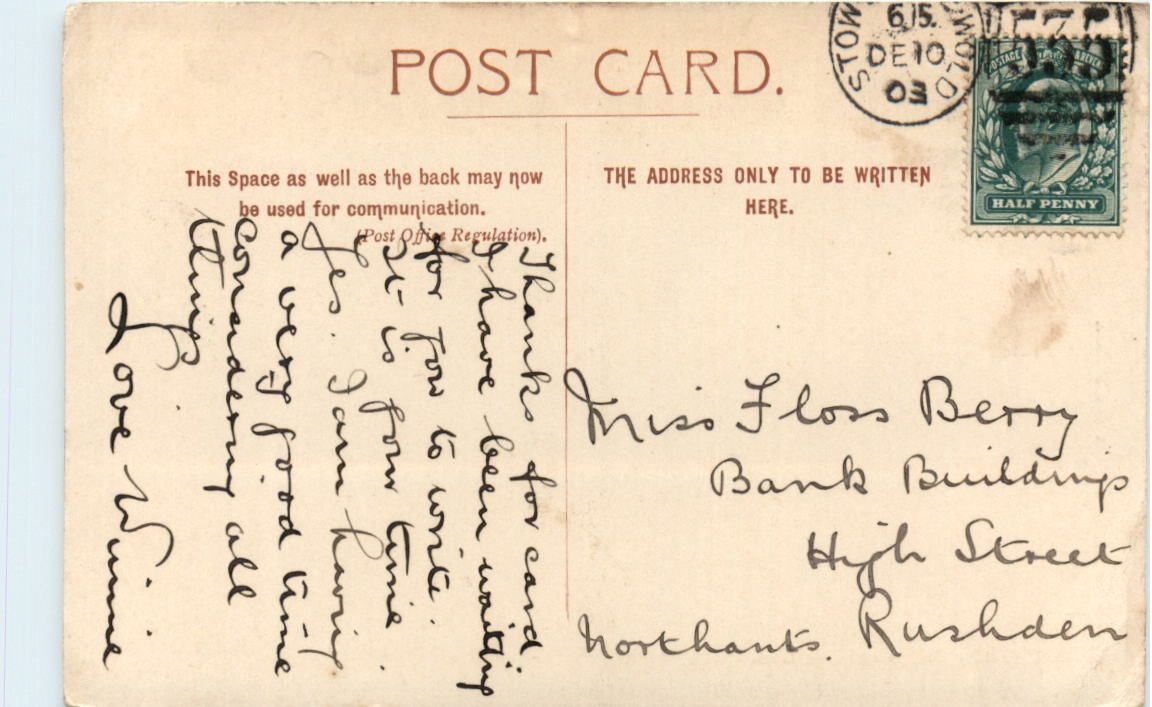 POST CARD.
This Space as well as the back may now
be used for communication.
(Post Office Regulation).
THE ADDRESS ONLY TO BE WRITTEN
HERE.
STOW WOLD
6.15.
DE 10
03
HALF PENNY
Thanks for card
I have been waiting
for you to write.
It is your time.
Yes. I am having
a very good time
considering all
things
Love Winnie
Miss Floss Berry
Bank Buildings
High Street
Rushden
Northants.